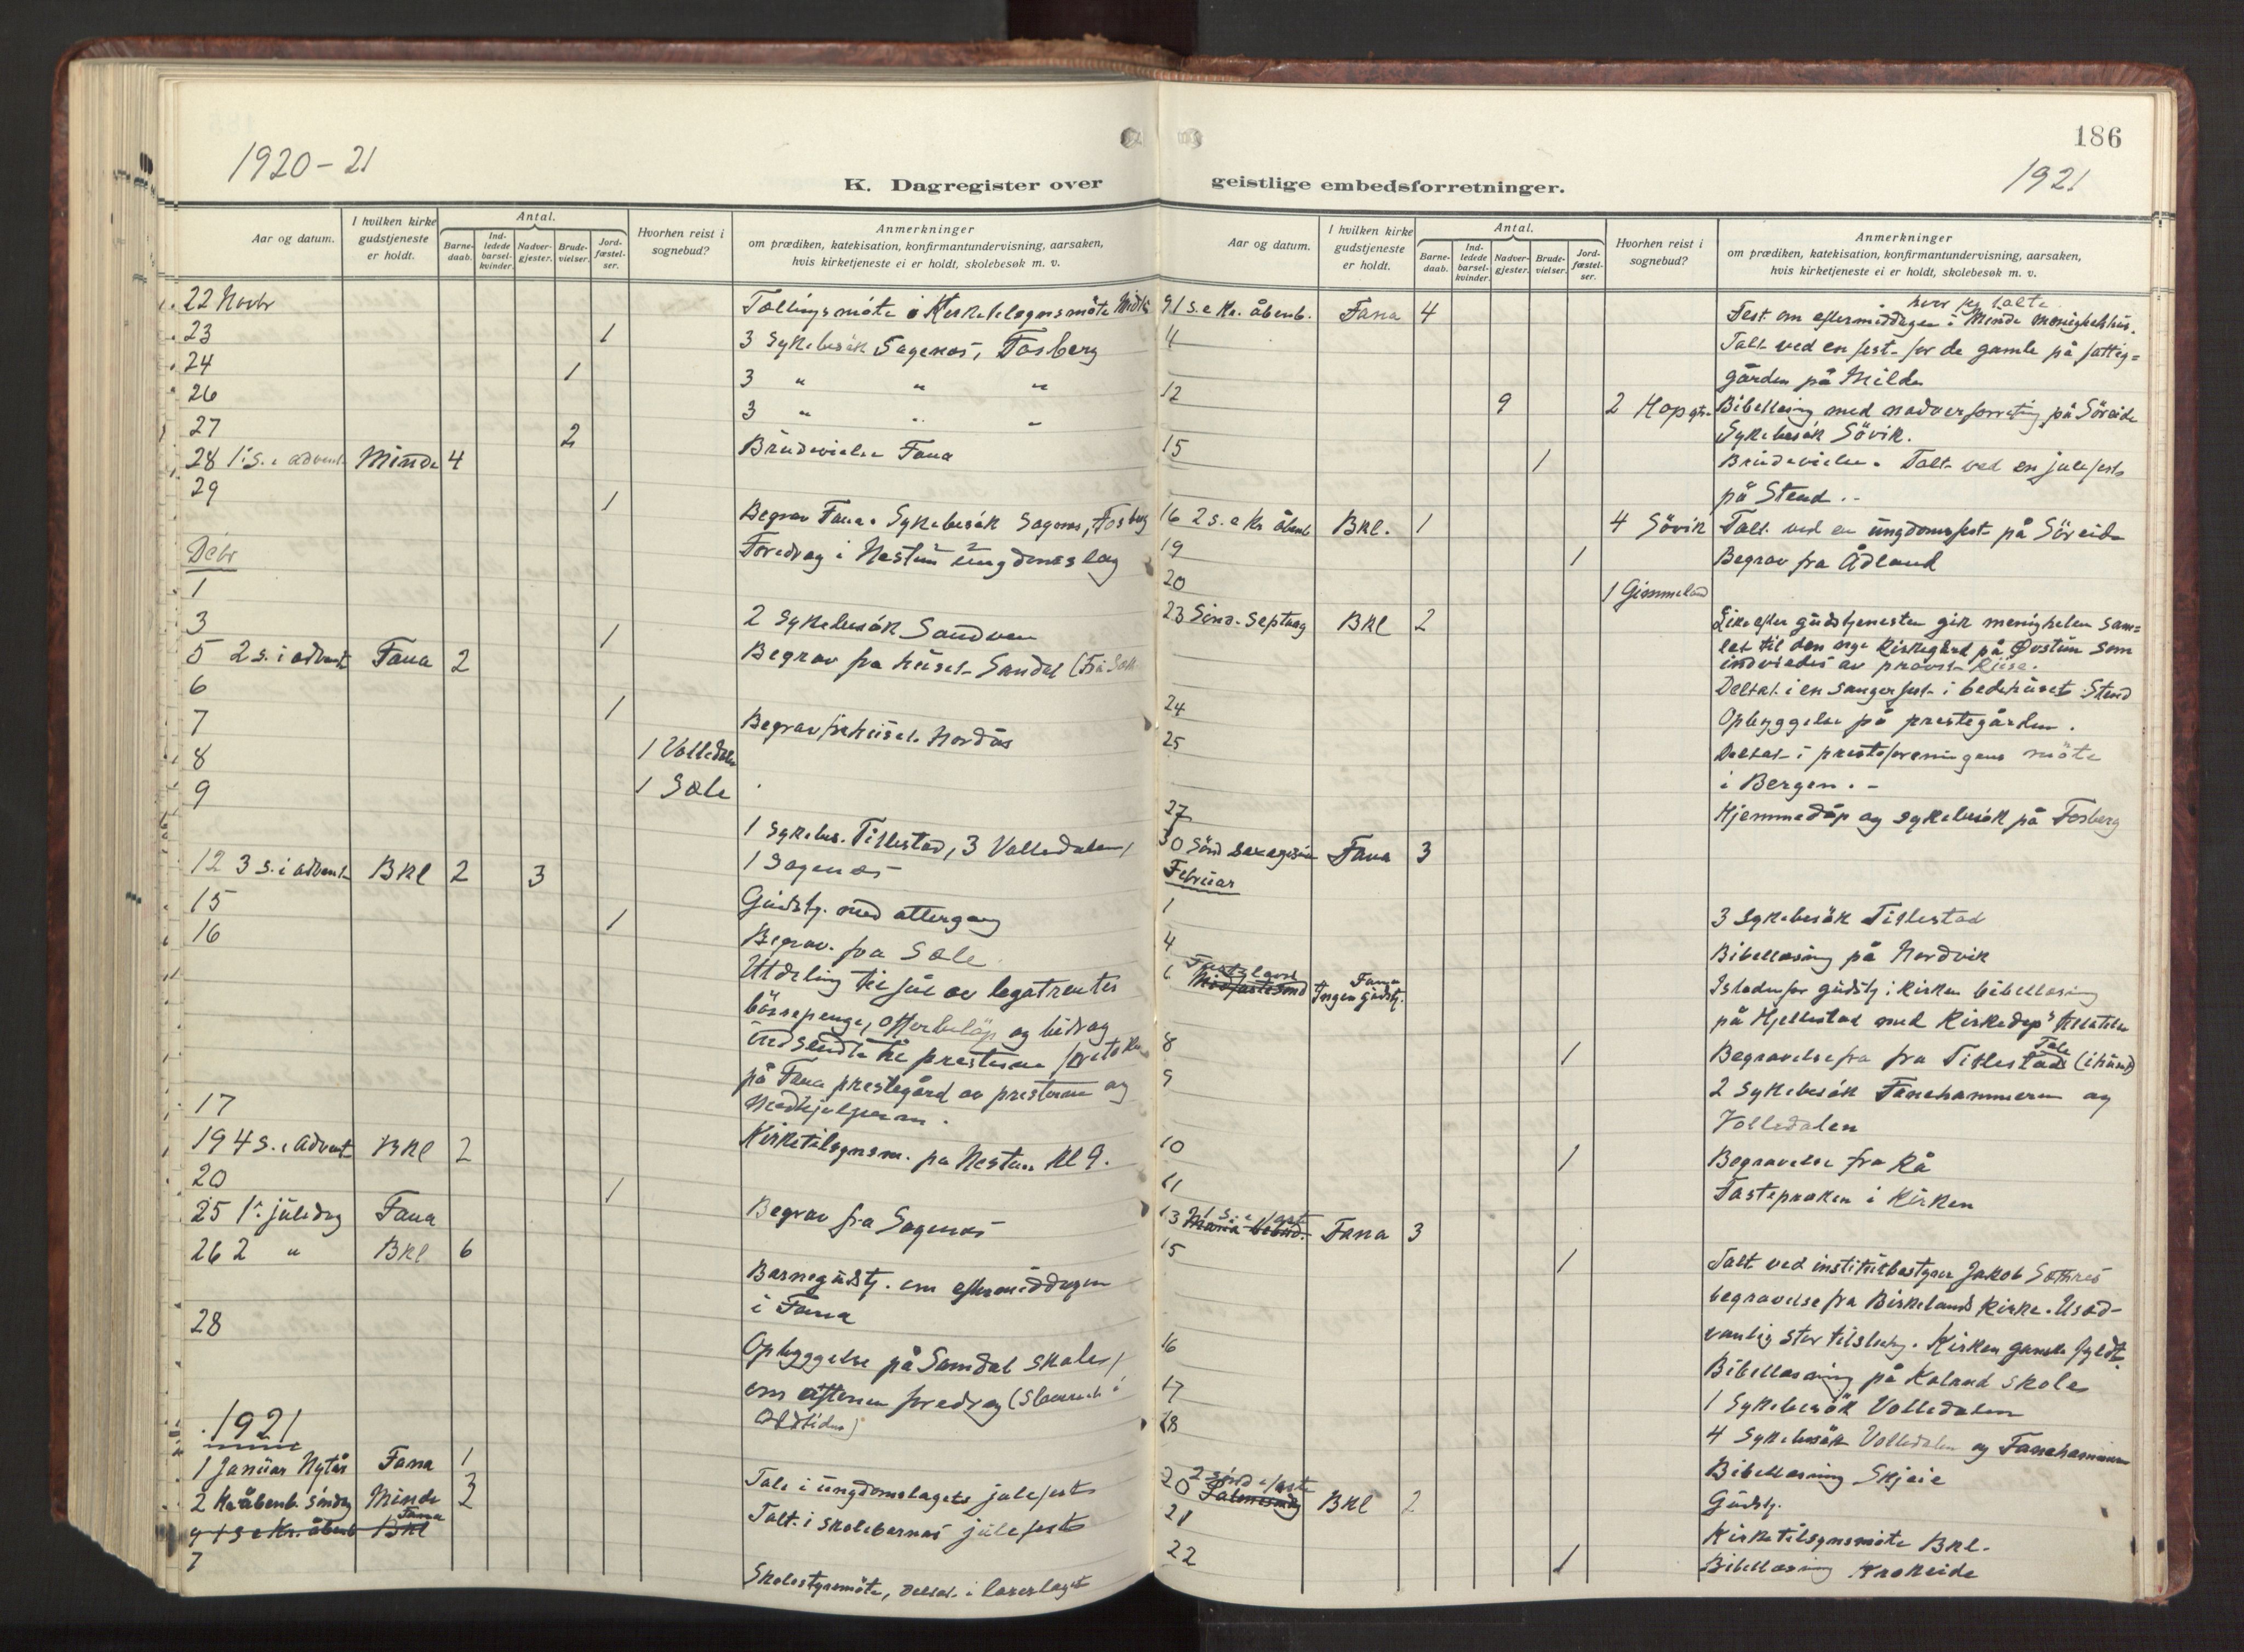 1920-21
K. Dagregister over
Aar og datum.
I hvilken kirke gudstjeneste er holdt.
Antal.
Barnedaab.
Indledede barselkvinder.
Nadvergjester.
Brudevielser.
Jordfæstelser.
Hvorhen reist i sognebud?
Anmerkninger
om prædiken, katekisation, konfirmantundervisning, aarsaken,
hvis kirketjeneste ei er holdt, skolebesøk m. v.
22 Novbr
23 1 3 Sykebesök Sagenos, Fosberg
24 1 3 " " "
26 3 " " "
27 2 Brudevielse Fana
28 1. s. i advent Minde 4
29 1 Begrav Fana. Sykebesök Sagenos, Fosberg
Foredrag i Nestun ungdomslag
Debr
1
3 1 2 Sykebesök Sandven
5 2 s. i advent Fana 2 Begrav fra huset Sandal
6
7 1 Begrav fra huset Nordås
8 1 Volledalen
9 1 Sæle
1 Sykebes. Tillestad, 3 Volledalen,
1 Sagenos
12 3 s. i advent BKl 2 3
Gudstj. med altergang
15
16 1 Begrav. fra Sæle
Utdeling til jul av legatrenter
bössepenge, offerbelöp og bidrag
indsendte til presterne
på Fana prestegård av presterne og
17 Kirketilsynsm. på Nestun Kl 9.
19 4 s. i advent BKl 2
20 1 Begrav fra Sagenos
25 1. juledag Fana
26 2 " BKl 6 Barnegudstj. om eftermiddagen
i Fana
28 Opbyggelse på Samdal skole,
om aftenen foredrag
1921
1 Januar Nytår Fana 1
2 Kr. åbenb. söndag Minde 3 Tale i ungdomslagets julefest
Talt i skolebarnas julefest
9 1 s e Kr. åbenb BKl Fana
7 Skolestyremöte, deltat i lærerlaget
186
1921
geistlige embedsforretninger.
Aar og datum.
I hvilken kirke gudstjeneste er holdt.
Antal.
Barnedaab.
Indledede barselkvinder.
Nadvergjester.
Brudevielser.
Jordfæstelser.
Hvorhen reist i sognebud?
Anmerkninger
om prædiken, katekisation, konfirmantundervisning, aarsaken,
hvis kirketjeneste ei er holdt, skolebesøk m. v.
9 1 s. e Kr. åbenb. Fana 4 Fest om eftermiddagen i Minde menighetshus.
hvor jeg talte
11 Talt ved en fest for de gamle på fattig=
gården på Milde
12 9 2 Hop Bibellæsning med nadverforretning på Söreide
Sykebesök Sövik.
15 1 Brudevielse. Talt ved en julefest
på Stend.
16 2 s. e Kr åbenb BKl. 1 4 Sövik Talt ved en ungdomsfest på Söreide
19 1 Begrav fra Ådland
20 1 Gjemmeland
23 Sönd. Septuag BKl 2 Like efter gudstjenesten gik menigheten sam=
let til den nye kirkegård på Övstun som
indviedes av provst Riise.
Deltat i en sangerfest i bedehuset Stend
24 Opbyggelse på prestegården.
25 Deltat i presteforeningens möte
i Bergen.
27 Hjemmedåp og sykebesök på Fosberg
30 Sönd Sexagesima Fana 3
Februar
1 3 Sykebesök Tillestad
4 Bibellæsning på Nordvik
6 Fastelavnssönd Midfastesönd Fana Ingen gudstj. Istedenfor gudstj i kirken bibellæsning
på Hjellestad med Kirkedep's tilladelse
8 1 Begravelse fra fra Tillestad (i huset) Tale
9 2 Sykebesök Fanehammeren og
Volledalen
10 1 Begravelse fra Rå
11 Fastepræken i kirken
13 1 s. i fast Maria bebud. Fana 3
15 1 Talt ved institutbestyrer Jakob Sæthres
begravelse fra Birkelands kirke. Usæd-
vanlig stor tilslutn. Kirken ganske fyldt.
16 Bibellæsning på Kaland skole
17 1 Sykebesök Volledalen
18 4 Sykebesök Volledalen og Fanehammeren
Bibellæsning Skjeie
20 2 sönd i faste Palmesöndag BKl 2 Gudstj.
21 Kirketilsynsmöte BKl.
22 1 Bibellæsning Krokeide